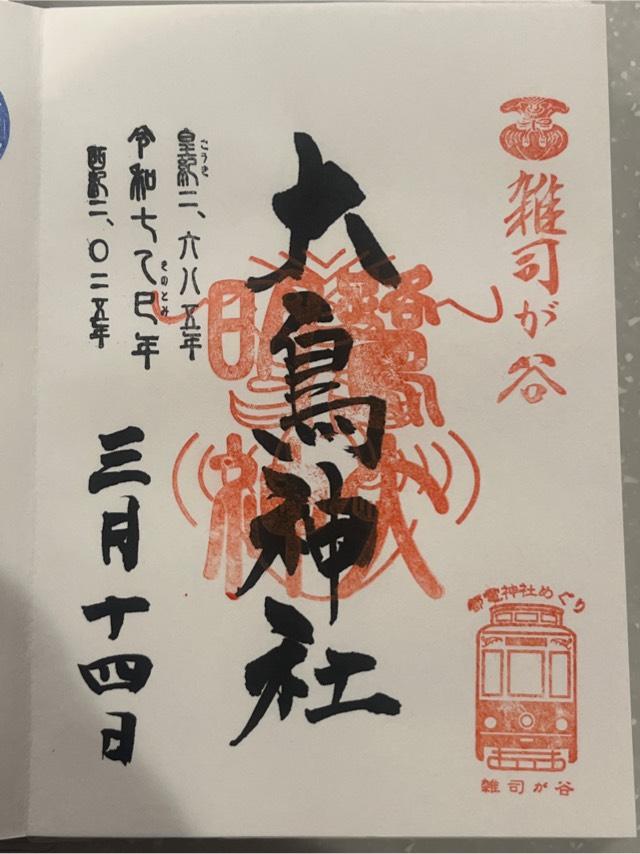 雑司が谷
大鳥神社
皇紀二、六八五年
こうき
令和七乙巳年
きのとみ
西暦二、〇二五年
三月十四日
都電神社めぐり
雑司が谷